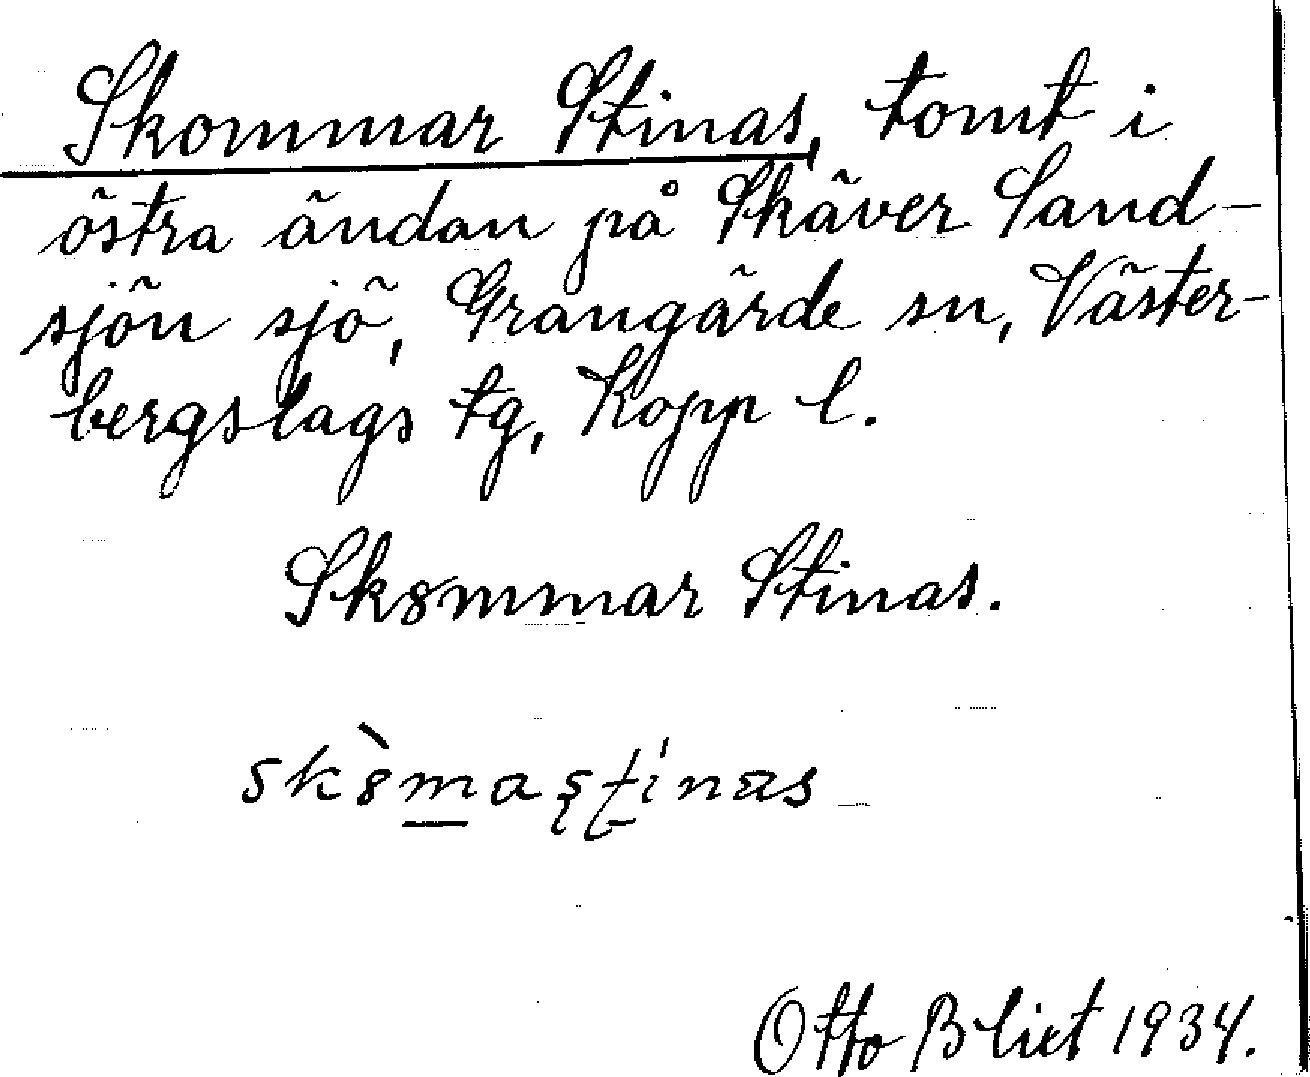 Skommar Stinas, tomt i
östra ändan på Skäver Sand-
sjön sjö, Grangärde sn, Väster-
bergslags tg, Kopp l.
Sk8mmar Stinas.
sk8̀maşţínas
Otto Blixt 1934.